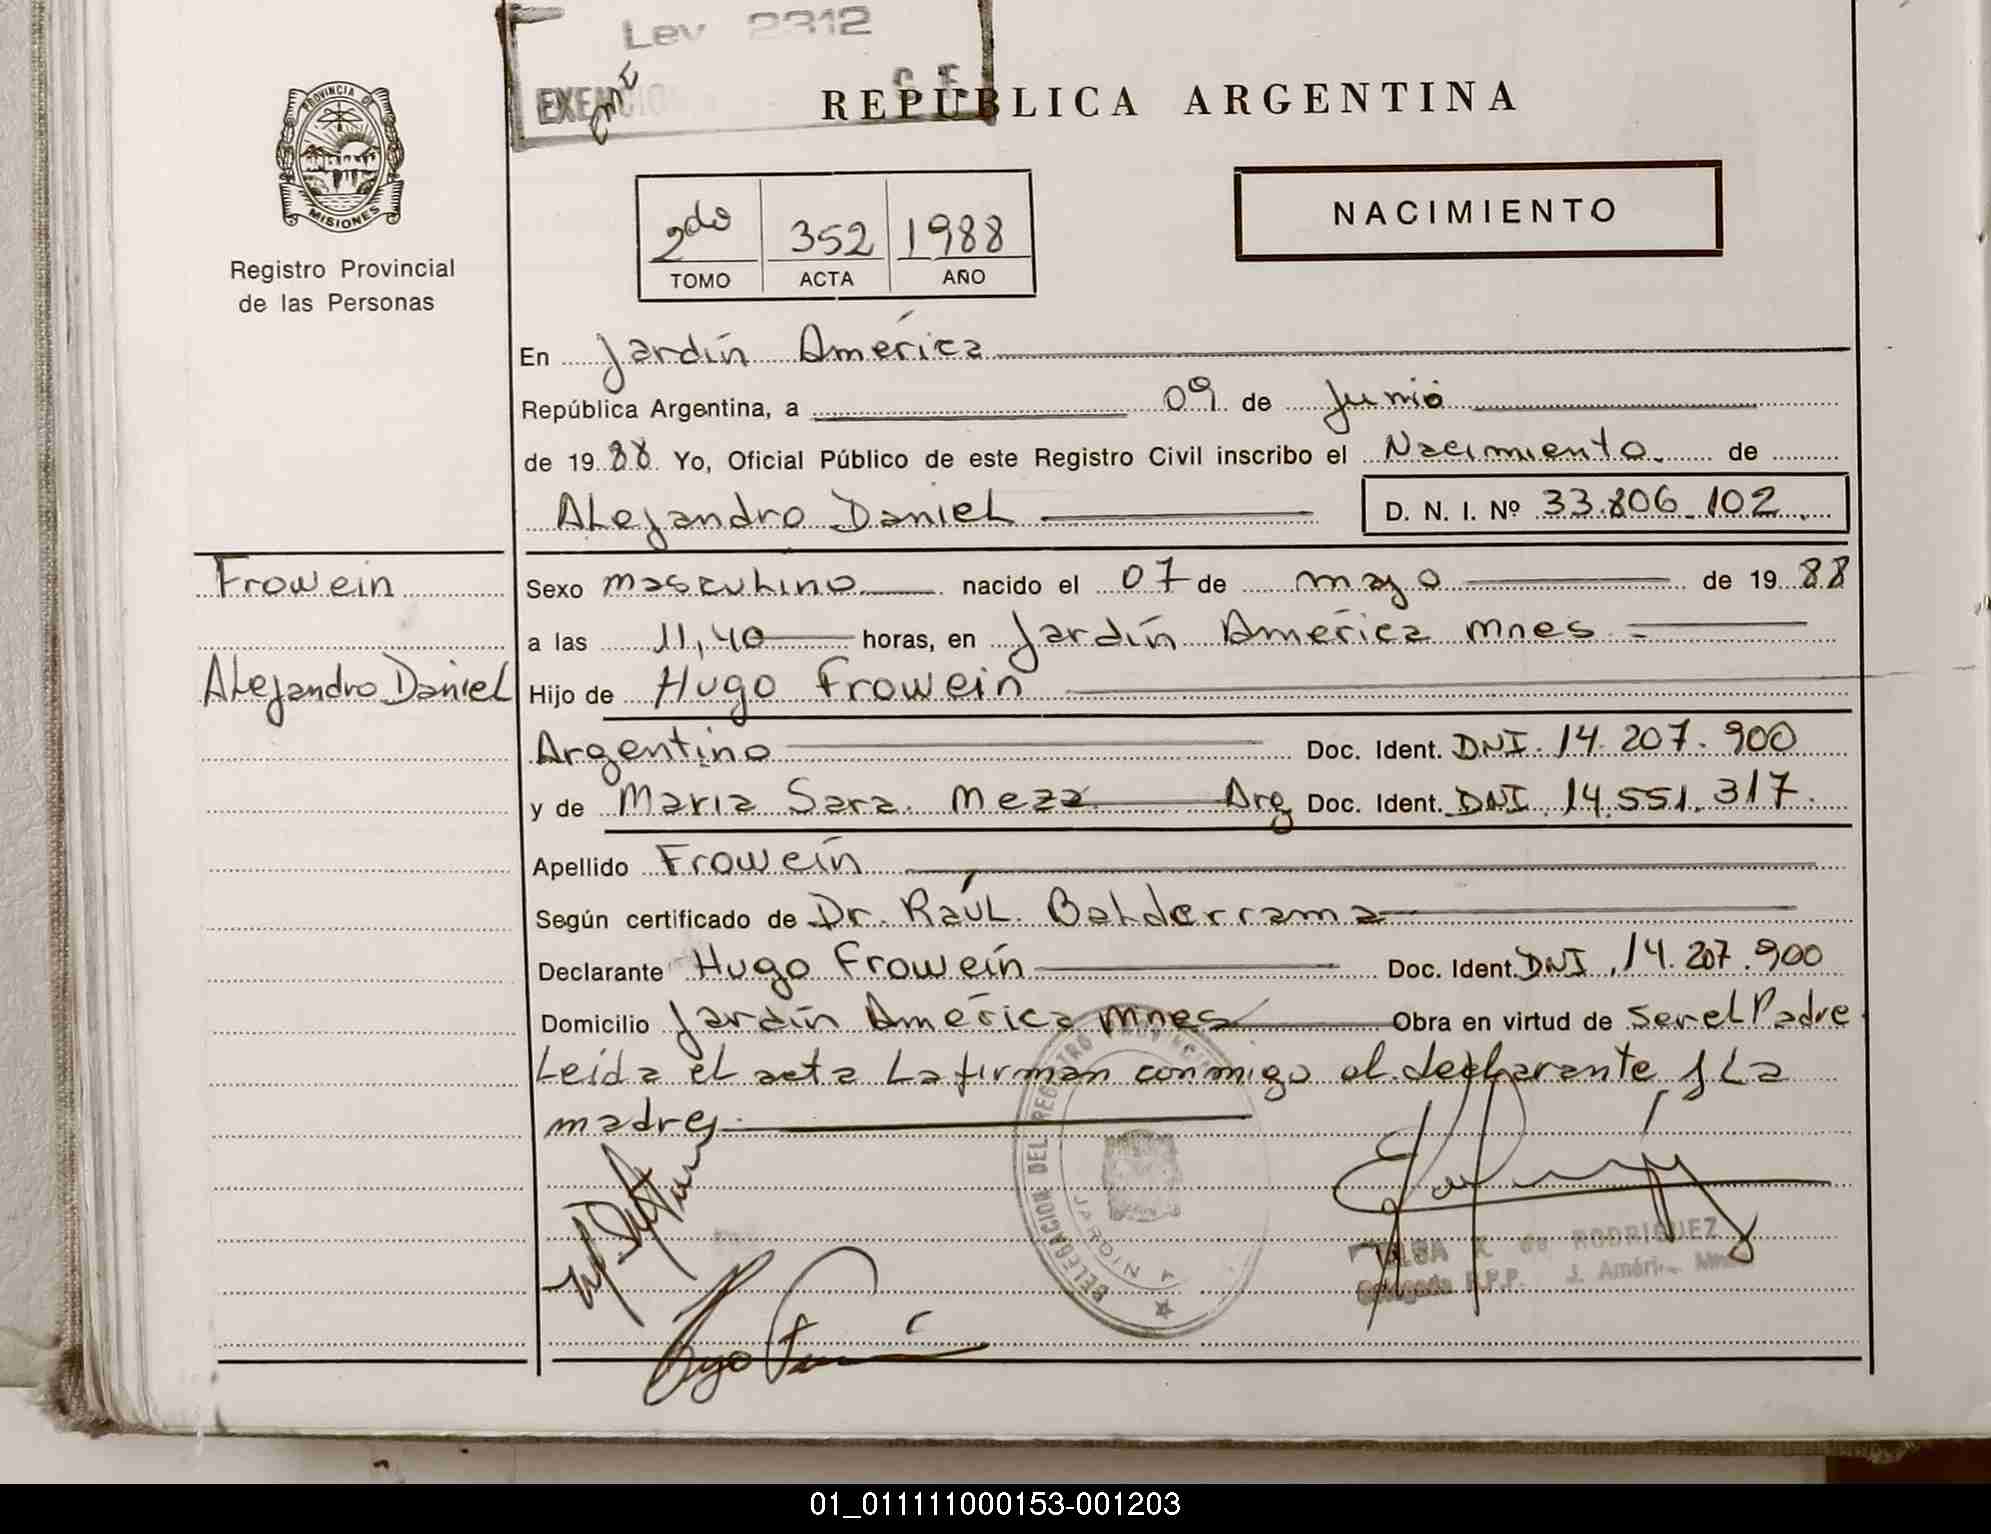 Ley 2312
EXENCION
C E
REPUBLICA ARGENTINA
PROVINCIA DE
MISIONES
Registro Provincial
de las Personas
NACIMIENTO
2do 352 1988
TOMO ACTA AÑO
En Jardín América
República Argentina, a 09 de Junio
de 19 88 Yo, Oficial Público de este Registro Civil inscribo el Nacimiento de
Alejandro Daniel D. N. I. Nº 33.806.102
Frowein
Alejandro Daniel
Sexo masculino nacido el 07 de mayo de 19 88
a las 11,40 horas, en Jardín América Mnes
Hijo de Hugo Frowein
Argentino Doc. Ident. DNI. 14.207.900
y de Maria Sara Meza Arg Doc. Ident. DNI. 14.551.317.
Apellido Frowein
Según certificado de Dr. Raúl Balderrama
Declarante Hugo Frowein Doc. Ident. DNI. 14.207.900
Domicilio Jardín América Mnes Obra en virtud de ser el Padre
Leída el acta la firman conmigo el declarante y la
madre
DELEGACION DEL REGISTRO PROVINCIAL
JARDIN A
de RODRIGUEZ
Delegada R.P.P. J. América Mnes
01_011111000153-001203